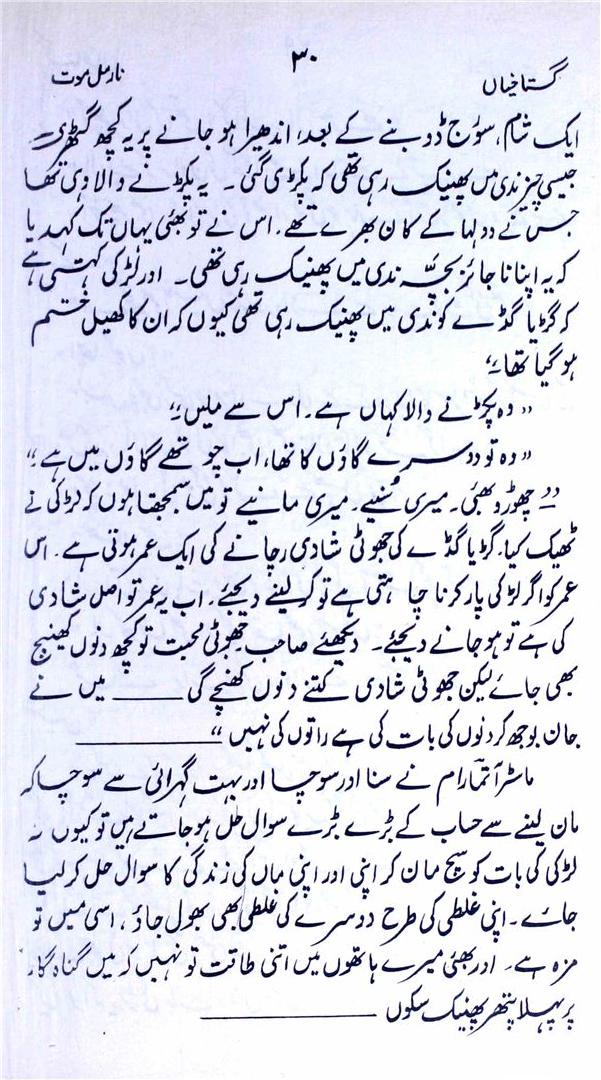 ۳۰
گستاخیاں
نارمل موت
ایک شام، سورج ڈوبنے کے بعد، اندھیرا ہو جانے پر یہ کچھ گٹھڑی سے
جیسی چیز ندی میں پھینک رہی تھی کہ پکڑی گئی ۔ یہ پکڑنے والا وہی تھا
جس نے دولہا کے کان بھرے تھے۔ اس نے تو بھئی یہاں تک کہہ دیا
کہ یہ اپنا ناجائز بچّہ ندی میں پھینک رہی تھی ۔ اور لڑکی کہتی ہے
کہ گڑیا گڈے کو ندی میں پھینک رہی تھی کیوں کہ ان کا کھیل ختم
ہو گیا تھا۔“
”وہ پکڑنے والا کہاں ہے۔ اس سے ملیں۔“
”وہ تو دوسرے گاؤں کا تھا، اب چوتھے گاؤں میں ہے۔“
”چھوڑو بھئی۔ میری سُنیے۔ میری مانیے تو میں سمجھتا ہوں کہ لڑکی نے
ٹھیک کیا۔ گڑیا گڈے کی جھوٹی شادی رچانے کی ایک عمر ہوتی ہے۔ اس
عمر کو اگر لڑکی پار کرنا چاہتی ہے تو کر لینے دیجئے۔ اب یہ عمر تو اصل شادی
کی ہے تو ہو جانے دیجئے۔ دیکھئے صاحب جھوٹی محبت تو کچھ دنوں کھینچ
بھی جائے لیکن جھوٹی شادی کتنے دنوں کھنچے گی ــــــــ میں نے
جان بوجھ کر دنوں کی بات کی ہے راتوں کی نہیں“ ــــــــــــــــ
ماسٹر آتمارام نے سنا اور سوچا اور بہت گہرائی سے سوچا کہ
مان لینے سے حساب کے بڑے بڑے سوال حل ہو جاتے ہیں تو کیوں نہ
لڑکی کی بات کو سچ مان کر اپنی اور اپنی ماں کی زندگی کا سوال حل کر لیا
جائے۔ اپنی غلطی کی طرح دوسرے کی غلطی بھی بھول جاؤ، اسی میں تو
مزہ ہے۔ اور بھئی میرے ہاتھوں میں اتنی طاقت تو نہیں کہ میں گناہ گار
پر پہلا پتھر پھینک سکوں ــــــــــــــــ